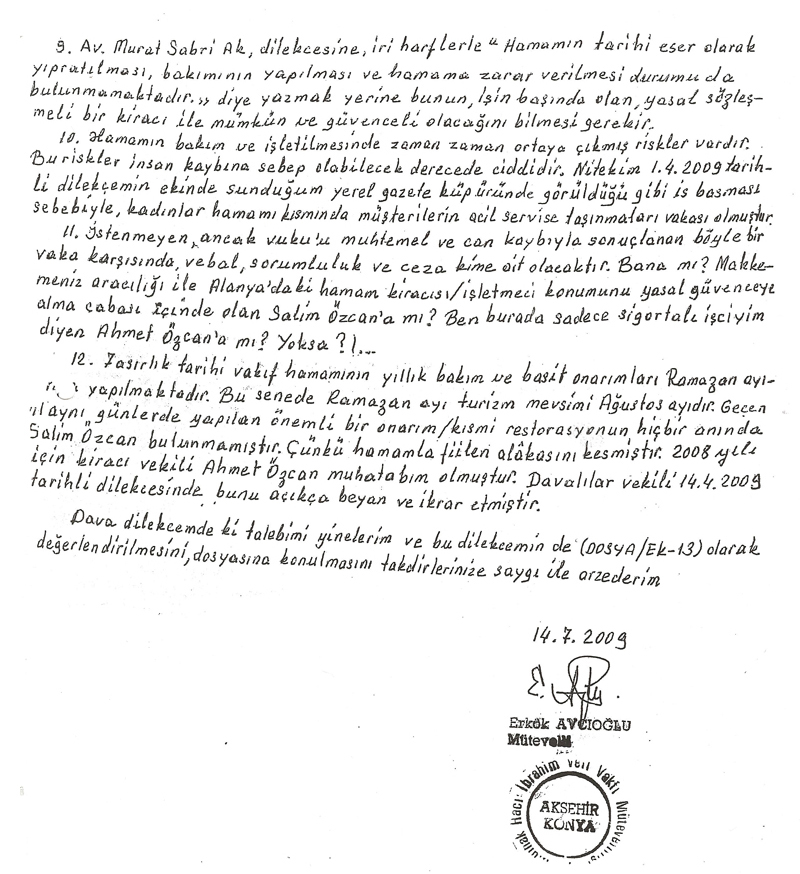 9. Av. Murat Sabri Ak, dilekcesine, iri harflerle " Hamamın tarihi eser olarak
yıpratılması, bakımının yapılması ve hamama zarar verilmesi durumu da
bulunmamaktadır.,, diye yazmak yerine bunun, işin başında olan, yasal sözleş-
meli bir kiracı ile mümkün ve güvenceli olacağını bilmesi gerekir.
10. Hamamın bakım ve işletilmesinde zaman zaman ortaya çıkmış riskler vardır.
Bu riskler insan kaybına sebep olabilecek derecede ciddidir. Nitekim 1.4.2009 tarih-
li dilekçemin ekinde sunduğum yerel gazete küpüründe görüldüğü gibi is basması
sebebiyle, kadınlar hamamı kısmında müşterilerin acil servise taşınmaları vakası olmuştur.
11. İstenmeyen, ancak vuku'u muhtemel ve can kaybıyla sonuçlanan böyle bir
vaka karşısında, vebal, sorumluluk ve ceza kime ait olacaktır. Bana mı? Mahke-
meniz aracılığı ile Alanya'daki hamam kiracısı/işletmeci konumunu yasal güvenceye
alma çabası içinde olan Salim Özcan'a mı? Ben burada sadece sigortalı işciyim
diyen Ahmet Özcan'a mı? Yoksa ?!...
12. Tasirlık tarihi vakıf hamamının yıllık bakım ve basit onarımları Ramazan ayı-
yapılmaktadır. Bu senede Ramazan ayı turizm mevsimi Ağustos ayıdır. Geçen
yıl aynı günlerde yapılan önemli bir onarım/kısmi restorasyonun hiçbir anında
Salim Özcan bulunmamıştır. Çünkü hamamla fiilen alâkasını kesmiştir. 2008 yılı
için kiracı vekili Ahmet Özcan muhatabım olmuştur. Davalılar vekili 14.4.2009
tarihli dilekcesinde bunu açıkça beyan ve ikrar etmiştir.
Dava dilekcemde ki talebimi yinelerim ve bu dilekcemin de (DOSYA/EK-13) olarak
değerlendirilmesini, dosyasına konulmasını takdirlerinize saygı ile arzederim
14.7.2009
Erkök AVCIOĞLU
Mütevelli
Hacı İbrahim Veli Vakfı
AKŞEHİR
KONYA